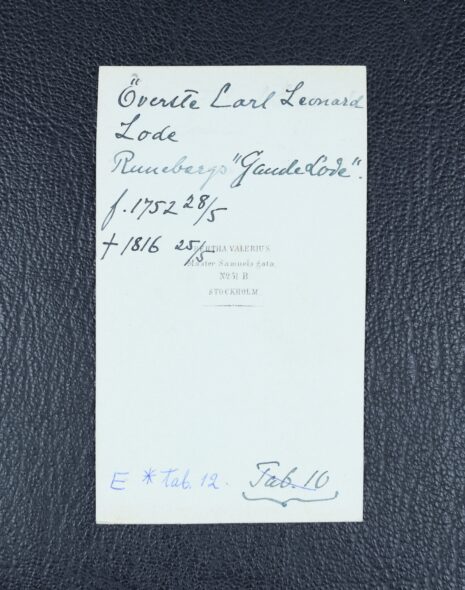 Överste Carl Leonard
Lode
Runebergs "Gamle Lode".
f. 1752 28/5
† 1816 25/5
BERTHA VALERIUS
Mäster Samuels gata
Nº 51 B
STOCKHOLM
E * tab. 12. Tab. 10